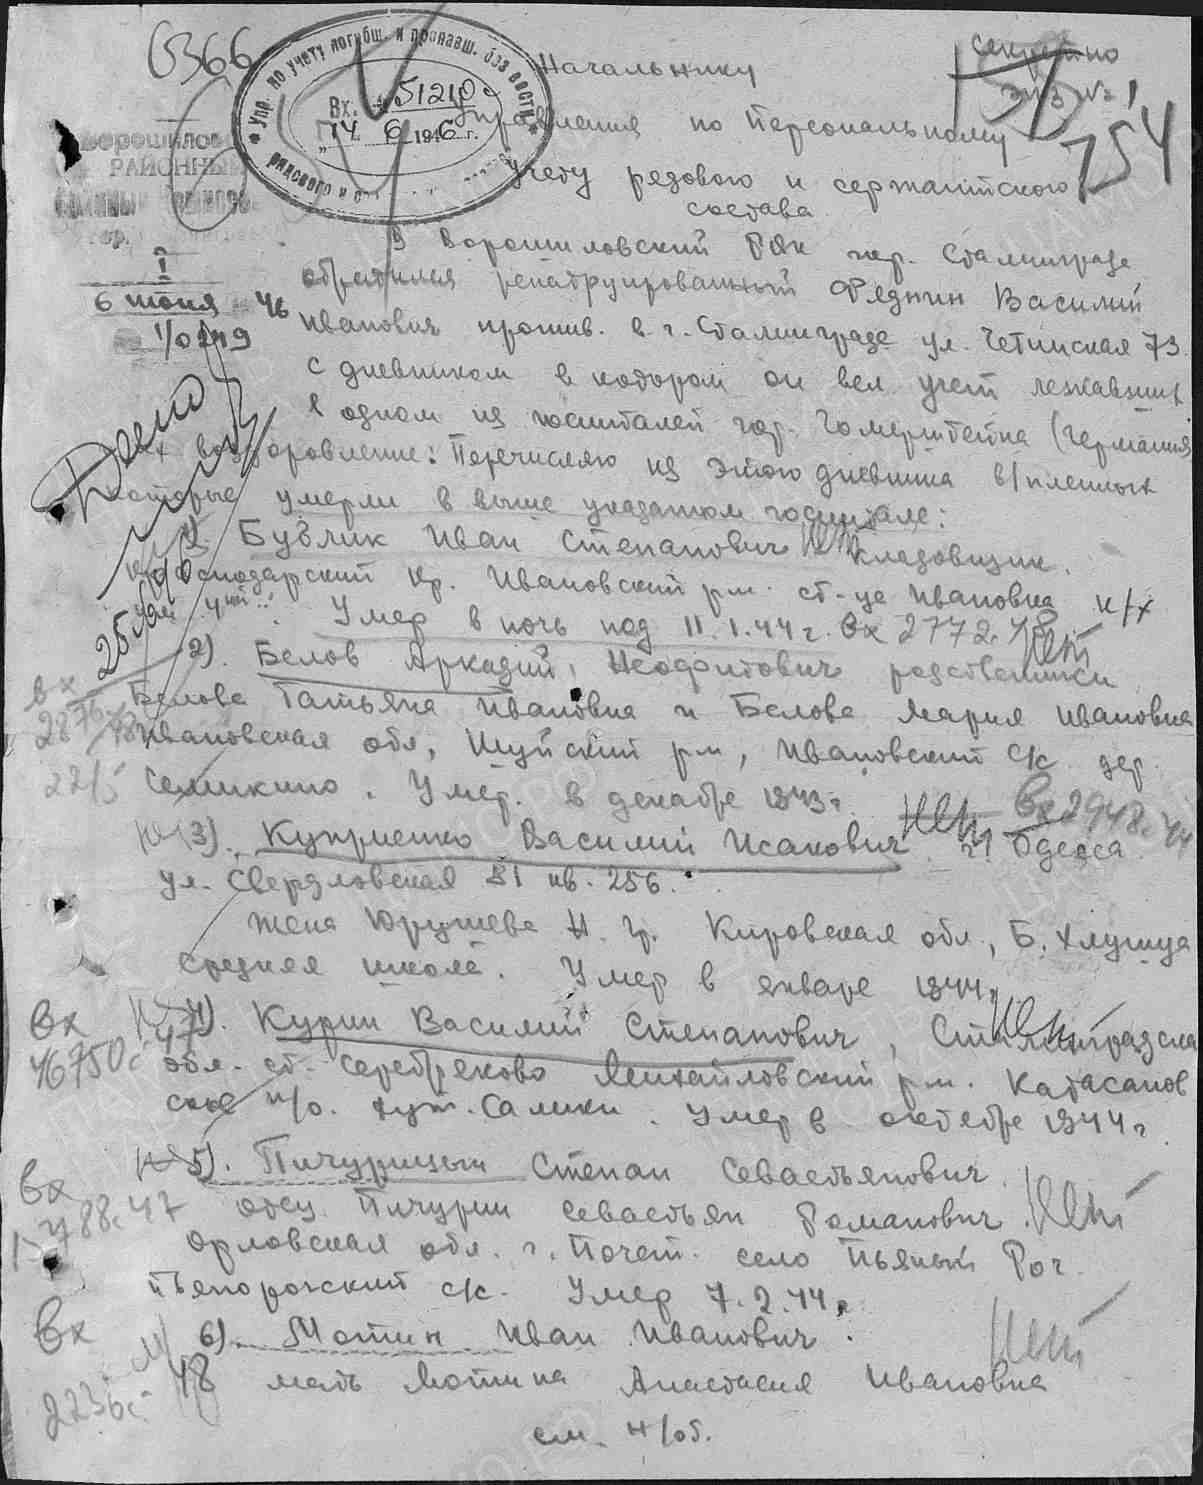 6366
Упр. по учету погибш. и пропавш. без вести
Вх. 51210с
"14" 6 1946 г.
рядового и
Секретно
экз № 1
754
Ворошиловский
РАЙОННЫЙ
I
6 июня 46
1/0249
Начальнику
Управления по персональному
учету рядового и сержантского
состава
В Ворошиловский РВК гор. Сталинграда
обратился репатруированный Федин Василий
Иванович прожив. в г. Сталинграде ул. Четинская 73.
с дневником в котором он вел учет лежавших
в одном из госпиталей гор. Гомерштейна (Германия)
на воздоровление: Перечисляю из этого дневника в/пленных
которые умерли в выше указаном госпитале:
1). Бублик Иван Степанович кладовщик.
Краснодарский кр. Ивановский р-н. ст-ца Ивановка к/х
Умер в ночь под 11.1.44 г. Вх 2772с 48 Нет
2). Белов Аркадий, Неофитович родственики
Белова Татьяна Ивановна и Белова Мария Ивановна
Ивановская обл, Шуйский р-н, Ивановский с/с дер.
Семикино. Умер. в декабре 1943 г.
Нет Вх 2948с 44
3). Куприенко Василий Исакович г. Одесса
ул. Свердловская 81 кв. 256.
Жена Юрушева Н. Гр. Кировская обл, Б. Хлуница
средняя школа. Умер в январе 1944 г
4). Курин Василий Степанович, Сталинградска
обл. ст. Серебряково Михайловский р-н. Катасанов
ское п/о. хут. Салики. Умер в октябре 1944 г.
Вх 46750с 47
5). Пичурицын Степан Севастьянович. Нет
отец Пичурин Севастьян Романович.
Орловская обл. г. Почеп. село Пьяный Рог
Пьянорогский с/с. Умер 7.2.44 г
Вх
6). Мотин Иван Иванович. Нет
мать Мотина Анастасия Ивановна
Вх 2236с 48
см. н/об.